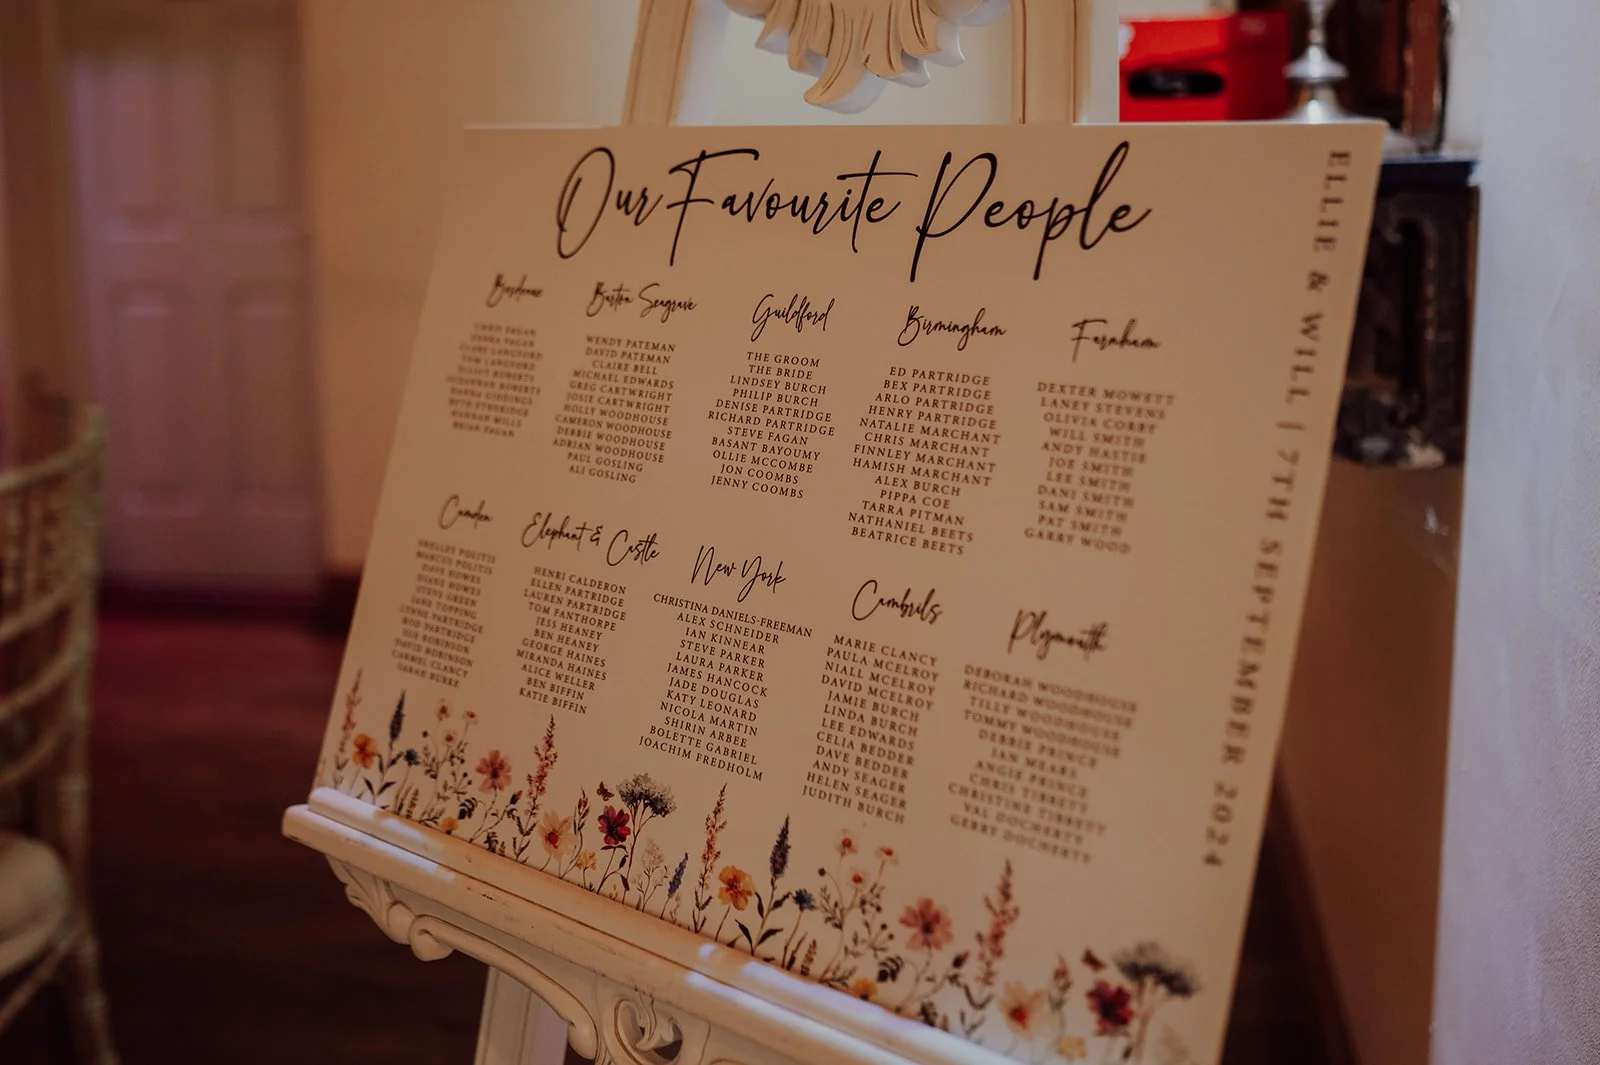 Our Favourite People
Bordeaux
CHRIS FAGAN
DEBRA FAGAN
CLARE LONGFORD
TOM LANGFORD
ELLIOT ROBERTS
SUSANNAH ROBERTS
HANNA GIDDINGS
BETH ETHERIDGE
HANNAH MILLS
BRIAN FAGAN
Barton Seagrave
WENDY PATEMAN
DAVID PATEMAN
CLAIRE BELL
MICHAEL EDWARDS
GREG CARTWRIGHT
JOSIE CARTWRIGHT
HOLLY WOODHOUSE
CAMERON WOODHOUSE
DEBBIE WOODHOUSE
ADRIAN WOODHOUSE
PAUL GOSLING
ALI GOSLING
Guildford
THE GROOM
THE BRIDE
LINDSEY BURCH
PHILIP BURCH
DENISE PARTRIDGE
RICHARD PARTRIDGE
STEVE FAGAN
BASANT BAYOUMY
OLLIE MCCOMBE
JON COOMBS
JENNY COOMBS
Birmingham
ED PARTRIDGE
BEX PARTRIDGE
ARLO PARTRIDGE
HENRY PARTRIDGE
NATALIE MARCHANT
CHRIS MARCHANT
FINNLEY MARCHANT
HAMISH MARCHANT
ALEX BURCH
PIPPA COE
TARRA PITMAN
NATHANIEL BEETS
BEATRICE BEETS
Farnham
DEXTER MOWETT
LANEY STEVENS
OLIVIA CORBY
WILL SMITH
ANDY HASTIE
JOE SMITH
LEE SMITH
DANI SMITH
SAM SMITH
PAT SMITH
GARRY WOOD
Camden
SHELLEY POLITIS
MARCUS POLITIS
DAVE HOWES
DIANE HOWES
STEVE GREEN
JANE TOPPING
LYNNE PARTRIDGE
ROD PARTRIDGE
SUE ROBINSON
DAVID ROBINSON
CARMEL CLANCY
SARAH BURKE
Elephant & Castle
HENRI CALDERON
ELLEN PARTRIDGE
LAUREN PARTRIDGE
TOM FANTHORPE
JESS HEANEY
BEN HEANEY
GEORGE HAINES
MIRANDA HAINES
ALICE WELLER
BEN BIFFIN
KATIE BIFFIN
New York
CHRISTINA DANIELS-FREEMAN
ALEX SCHNEIDER
IAN KINNEAR
STEVE PARKER
LAURA PARKER
JAMES HANCOCK
JADE DOUGLAS
KATY LEONARD
NICOLA MARTIN
SHIRIN ARBEE
BOLETTE GABRIEL
JOACHIM FREDHOLM
Cambrils
MARIE CLANCY
PAULA MCELROY
NIALL MCELROY
DAVID MCELROY
JAMIE BURCH
LINDA BURCH
LEE EDWARDS
CELIA BEDDER
DAVE BEDDER
ANDY SEAGER
HELEN SEAGER
JUDITH BURCH
Plymouth
DEBORAH WOODHOUSE
RICHARD WOODHOUSE
TILLY WOODHOUSE
TOMMY WOODHOUSE
DEBBIE PRINCE
IAN MEARS
ANGIE PRINCE
CHRIS TIBBETT
CHRISTINE TIBBETT
VAL DOCHERTY
GERRY DOCHERTY
ELLIE & WILL | 7TH SEPTEMBER 2024